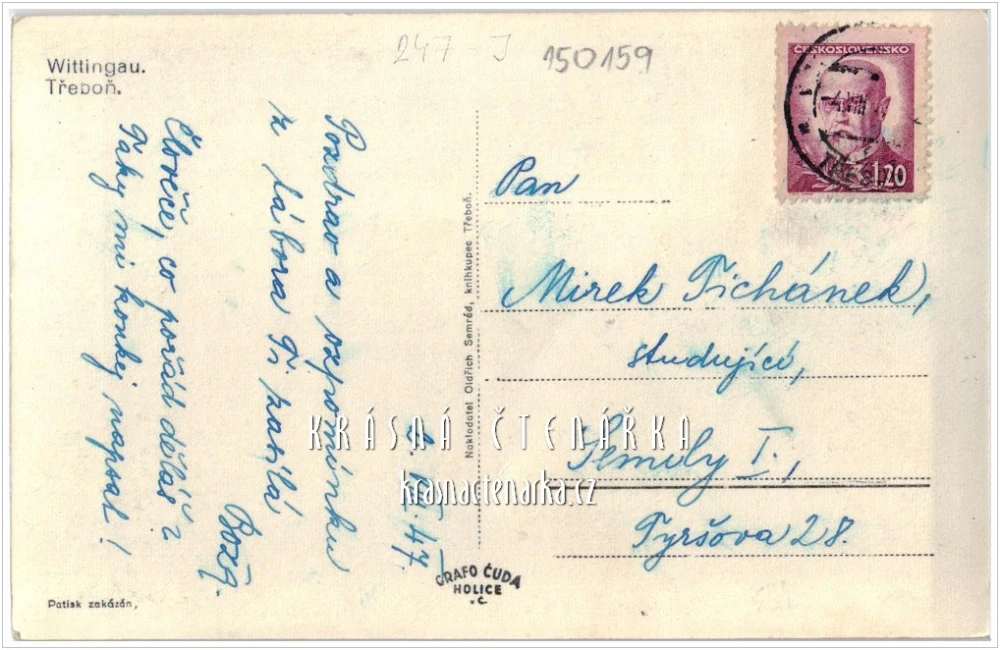 247-J 150159
Wittingau.
Třeboň.
ČESKOSLOVENSKO
1.20
Pozdrav a vzpomínku
z Tábora Ti zasílá
Božq.
47.
Člověče, co pořád děláš?
Taky mi honkej napsal!
Pan
Mirek Tichánek,
studující,
Semily I.,
Tyršova 28.
Nakladatel Oldřich Semrád, knihkupec Třeboň.
KRÁSNÁ ČTENÁŘKA
krasnactenarka.cz
GRAFO ČUDA
HOLICE
Patisk zakázán,